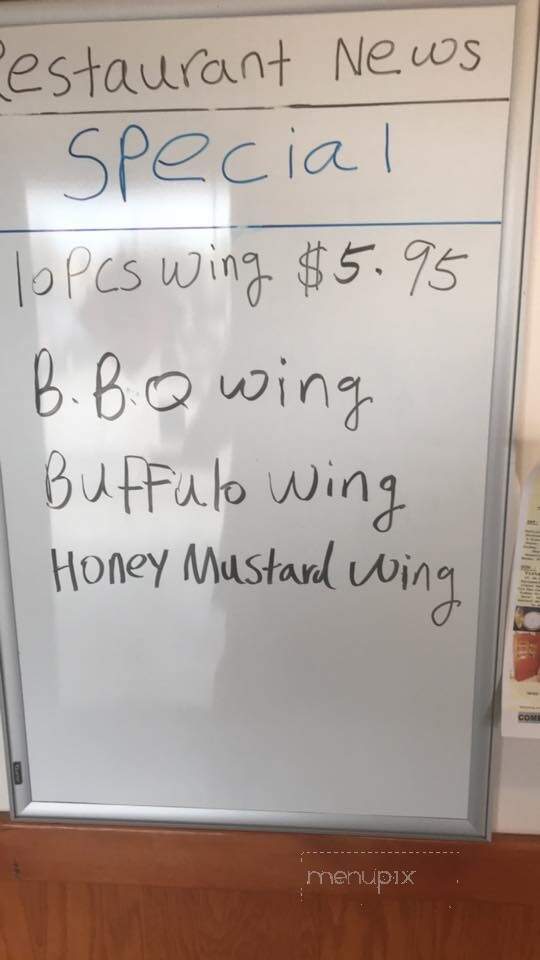 Restaurant News
Special
10 Pcs wing $5.95
B.B.Q wing
Buffulo Wing
Honey Mustard Wing
COM
menupix